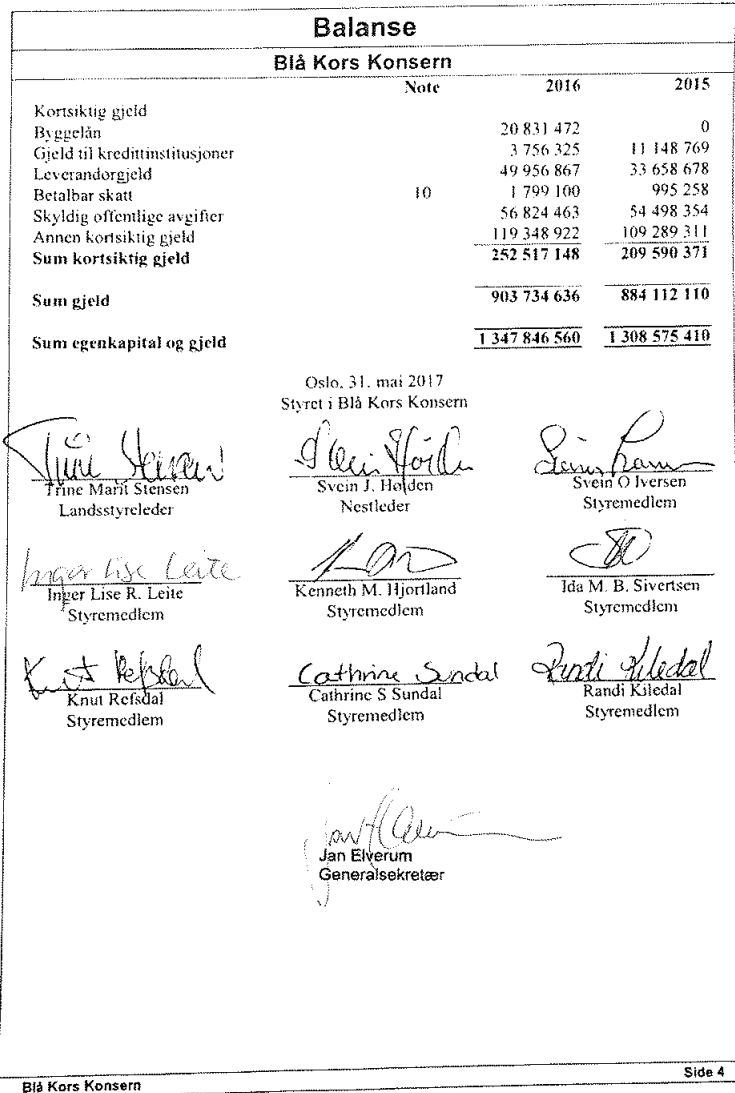 Balanse
Blå Kors Konsern
Note 2016 2015
Kortsiktig gjeld
Byggelån 20 831 472 0
Gjeld til kredittinstitusjoner 3 756 325 11 148 769
Leverandørgjeld 49 956 867 33 658 678
Betalbar skatt 10 1 799 100 995 258
Skyldig offentlige avgifter 56 824 463 54 498 354
Annen kortsiktig gjeld 119 348 922 109 289 311
Sum kortsiktig gjeld 252 517 148 209 590 371
Sum gjeld 903 734 636 884 112 110
Sum egenkapital og gjeld 1 347 846 560 1 308 575 410
Oslo, 31. mai 2017
Styret i Blå Kors Konsern
Trine Stensen
Trine Marit Stensen Svein J. Holden Svein O Iversen
Landsstyreleder Nestleder Styremedlem
Inger Lise Leite
Inger Lise R. Leite Kenneth M. Hjortland Ida M. B. Sivertsen
Styremedlem Styremedlem Styremedlem
Knut Refsdal Cathrine Sundal Randi Kiledal
Knut Refsdal Cathrine S Sundal Randi Kiledal
Styremedlem Styremedlem Styremedlem
Jan Elverum
Generalsekretær
Blå Kors Konsern Side 4